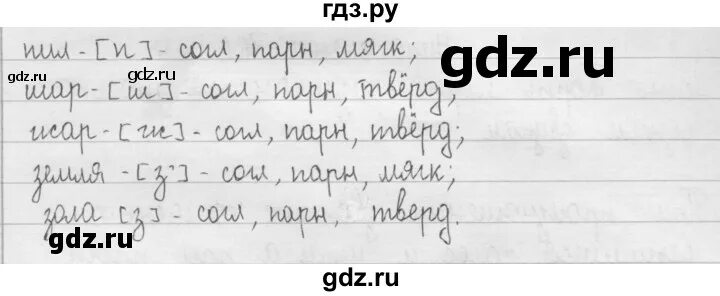 гдз.ру
пил - [п'] - согл, парн, мягк;
gdz.ru gdz.ru
шар - [ш] - согл, парн, твёрд;
жар - [ж] - согл, парн, твёрд;
земля - [з'] - согл, парн, мягк;
зола [з] - согл, парн, тверд.
gdz.ru gdz.ru
gdz.ru